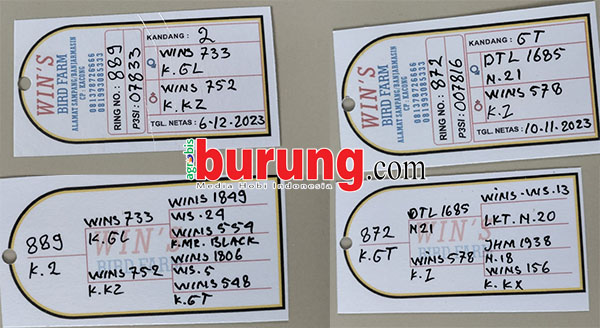 WIN'S
BIRD FARM
ALAMAT SAMPANG/BANJARMASIN
CP. KACONG
081378726666
081993085333
RING NO.: 889
P3SI: 07833
KANDANG: 2
WINS 733
K.GL
WINS 752
K.KZ
TGL. NETAS: 6-12-2023
WIN'S
BIRD FARM
ALAMAT SAMPANG/BANJARMASIN
CP. KACONG
081378726666
081993085333
RING NO.: 872
P3SI: 007816
KANDANG: GT
DTL 1685
N.21
WINS 578
K.I
TGL. NETAS: 10-11-2023
agrobis
burung.com
Media Hobi Indonesia
WIN'S
BIRD FARM
889
K.2
WINS 733
K.GL
WINS 752
K.KZ
WINS 1849
WS.24
WINS 554
K.MR. BLACK
WINS 1806
WS.5
WINS 548
K.GT
WIN'S
BIRD FARM
872
K.GT
DTL 1685
N21
WINS 578
K.I
WINS-WS.13
LKT. N.20
JHM 1938
N.18
WINS 156
K.KX